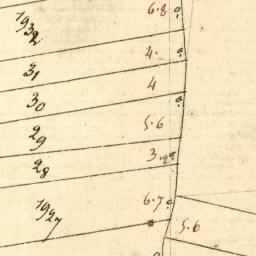 1932 6.8
31 4.
30 4
29 5.6
28 3.
1927 6.7
5.6